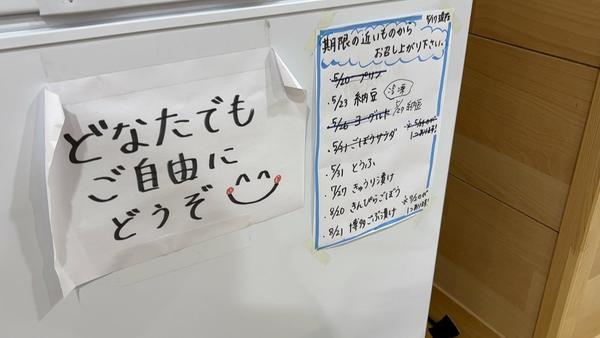 どなたでも
ご自由に
どうぞ
5/17現在
期限の近いものから
お召し上がり下さい。
5/20 プリン
・5/23 納豆 冷凍
・5/26 ヨーグルト 5/29 納豆
・5/31 ごぼうサラダ
1つあります!
・5/31 とうふ
・7/27 きゅうり漬け
・8/20 きんぴらごぼう
・8/21 博多ごぶ漬け
1つあります!